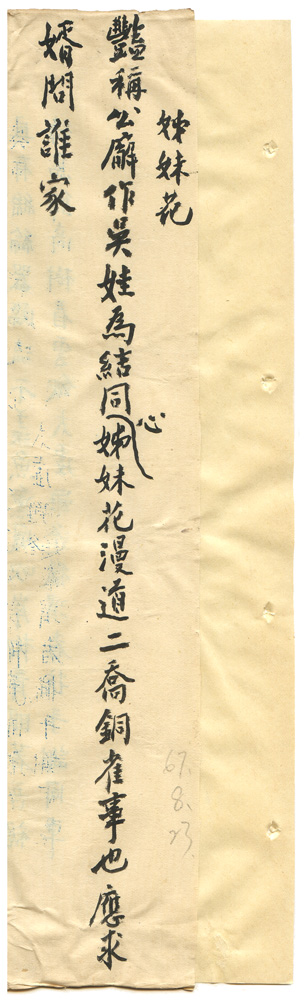 姊妹花
豔稱公廨作吳娃為結同心姊妹花漫道二喬銅雀事也應求
婿問誰家
67.8.23.